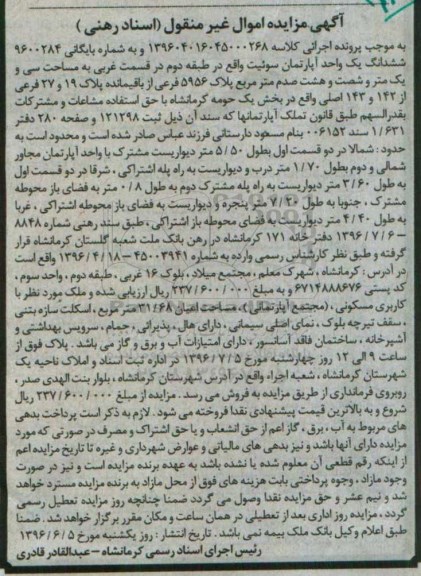 آگهی مزایده اموال غیر منقول (اسناد رهنی)
به موجب پرونده اجرائی کلاسه ۱۳۹۶۰۴۰۱۶۰۴۵۰۰۰۲۶۸ و به شماره بایگانی ۹۶۰۰۲۸۴
ششدانگ یک واحد آپارتمان سوئیت واقع در طبقه دوم در قسمت غربی به مساحت سی و
یک متر و شصت و هشت صدم متر مربع پلاک ۵۹۵۶ فرعی از باقیمانده پلاک ۱۹ و ۲۷ فرعی
از ۱۴۲ و ۱۴۳ اصلی واقع در بخش یک حومه کرمانشاه با حق استفاده مشاعات و مشترکات
بقدرالسهم طبق قانون تملک آپارتمانها که سند آن ذیل ثبت ۱۲۱۲۹۸ و صفحه ۲۸۰ دفتر
۱/۶۳۱ سند ۰۰۶۱۵۲ بنام مسعود دارستانی فرزند عباس صادر شده است و محدود است به
حدود: شمالا در دو قسمت اول بطول ۵/۵۰ متر دیواریست مشترک با واحد آپارتمان مجاور
شمالی و دوم بطول ۱/۷۰ متر درب و دیواریست به راه پله اشتراکی، شرقا در دو قسمت اول
به طول ۳/۶۰ متر دیواریست به راه پله مشترک دوم به طول ۰/۸ متر به فضای باز محوطه
مشترک، جنوبا به طول ۷/۲۰ متر پنجره و دیواریست به فضای باز محوطه اشتراکی، غربا
به طول ۴/۴۰ متر دیواریست به فضای محوطه باز اشتراکی، طبق سند رهنی شماره ۸۸۴۸
– ۱۳۹۶/۷/۶ دفتر خانه ۱۷۱ کرمانشاه در رهن بانک ملت شعبه گلستان کرمانشاه قرار
گرفته و طبق نظر کارشناس رسمی وارده به شماره ۴۵۰۰۳۹۴۱ – ۱۳۹۶/۴/۱۸ واقع است
در آدرس: کرمانشاه، شهرک معلم، مجتمع میلاد، بلوک ۱۶ غربی، طبقه دوم، واحد سوم،
کد پستی ۶۷۱۴۸۸۸۶۷۶ و به مبلغ ۲۳۷/۶۰۰/۰۰۰ ریال ارزیابی شده و ملک مورد نظر با
کاربری مسکونی، (مجتمع آپارتمانی)، مساحت اعیان ۳۱/۶۸ متر مربع، اسکلت سازه بتنی
، سقف تیرچه بلوک، نمای اصلی سیمانی، دارای هال، پذیرائی، حمام، سرویس بهداشتی و
آشپزخانه، ساختمان فاقد آسانسور، دارای امتیازات آب و برق و گاز می باشد. پلاک فوق از
ساعت ۹ الی ۱۲ روز چهارشنبه مورخ ۱۳۹۶/۷/۵ در اداره ثبت اسناد و املاک ناحیه یک
شهرستان کرمانشاه، شعبه اجراء واقع در آدرس شهرستان کرمانشاه، بلوار بنت الهدی صدر،
روبروی فرمانداری از طریق مزایده به فروش می رسد. مزایده از مبلغ ۲۳۷/۶۰۰/۰۰۰ ریال
شروع و به بالاترین قیمت پیشنهادی نقدا فروخته می شود. لازم به ذکر است پرداخت بدهی
های مربوط به آب، برق، گاز اعم از حق انشعاب و یا حق اشتراک و مصرف در صورتی که مورد
مزایده دارای آنها باشد و نیز بدهی های مالیاتی و عوارض شهرداری و غیره تا تاریخ مزایده اعم
از اینکه رقم قطعی آن معلوم شده یا نشده باشد به عهده برنده مزایده است و نیز در صورت
وجود مازاد، وجوه پرداختی بابت هزینه های فوق از محل مازاد به برنده مزایده مسترد خواهد
شد و نیم عشر و حق مزایده نقدا وصول می گردد ضمنا چنانچه روز مزایده تعطیل رسمی
گردد، مزایده روز اداری بعد از تعطیلی در همان ساعت و مکان مقرر برگزار خواهد شد. ضمنا
طبق اعلام وکیل بانک ملک بیمه نمی باشد. تاریخ انتشار: روز یکشنبه مورخ ۱۳۹۶/۶/۵
رئیس اجرای اسناد رسمی کرمانشاه – عبدالقادر قادری